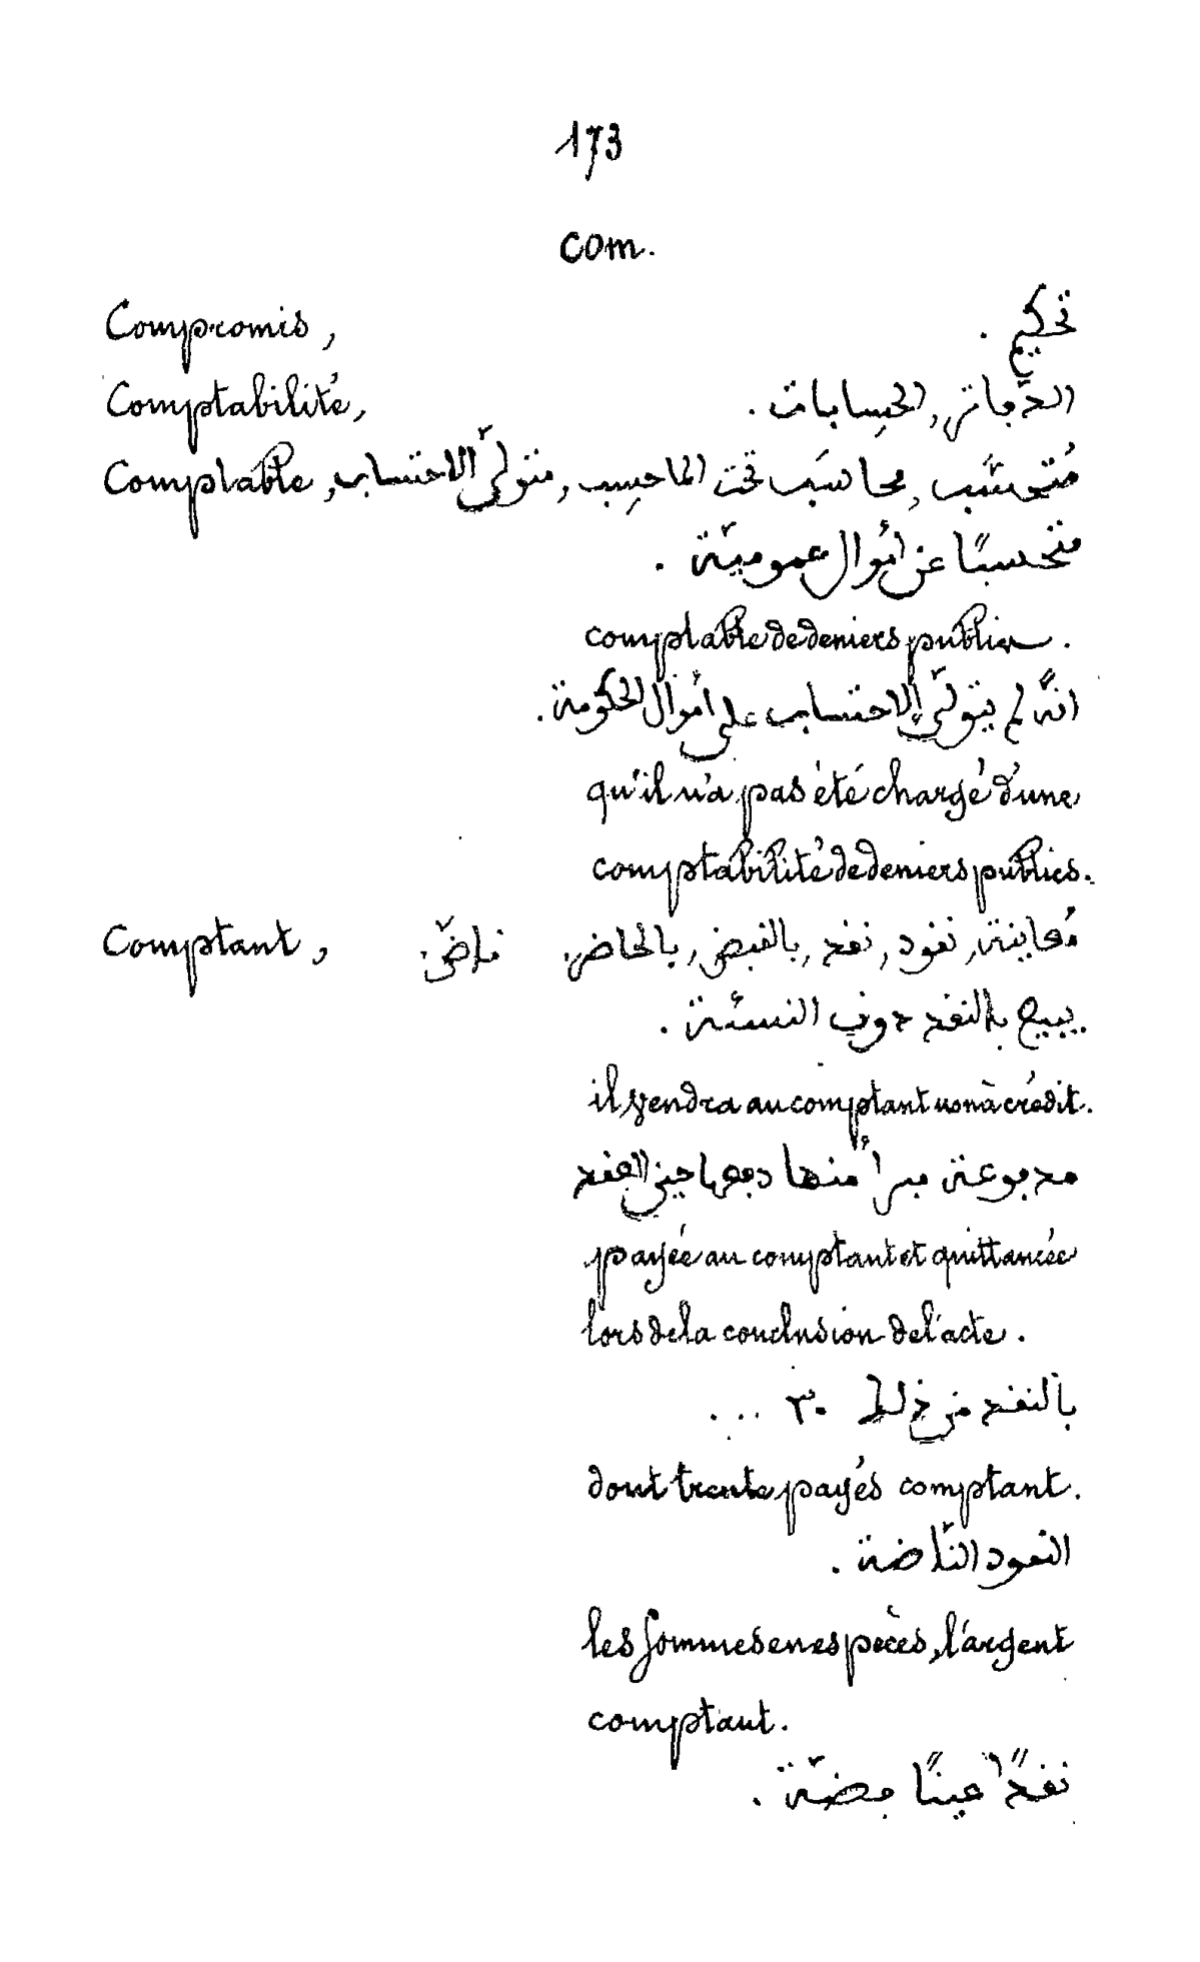 173
com.
Compromis, تحكيم .
Comptabilité, الدّفاتر, الحِسابات .
Comptable, محاسَب تحت الماحسِب, متولّى الاحتساب,
متحسبًا عن أموال عموميّة .
comptable de deniers publics .
انّه لم يتولّى الاحتساب على أموال الحكومة .
qu'il n'a pas été chargé d'une
comptabilité de deniers publics.
Comptant, مُعاينة, نقود, نقد, بالقبض, بالحاضر. ناضّ.
يبيع بالنقد دون النسئة .
il vendra au comptant non à crédit.
مدفوعة مبرأ منها دافعها حين العقد
payée au comptant et quittancée
lors de la conclusion de l'acte .
بالنقد من ذلك ٣٠ ...
dont trente payés comptant.
النقود النّاضة .
les sommes en espèces, l'argent
comptant.
نقدًا عينًا فضّة .